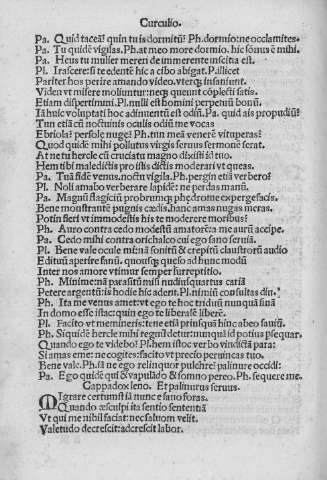 Curculio.
Pa. Quid taceā? quin tu is dormitū? Ph. dormio: ne occlamites.
Pa. Tu quidē vigilas. Ph. at meo more dormio. hic sōnus ē mihi.
Pa. Heus tu mulier mereri de immerente inscitia est.
Pl. Irascere: si te edentē hic a cibo abigat. Pa. ilicet
Pariter hos perire amando video. vterq; insaniunt.
Viden vt misere moliuntur: neq; queunt cōplecti satis.
Etiam dispertimini. Pl. nulli est homini perpetuū bonū.
Iā huic voluptati hoc adiunctū est odiū. Pa. quid ais propudiū?
Tun etiā cū noctuinis oculis odiū me vocas
Ebriola? persole nuge? Ph. tun meā venerē vituperas?
Quod quidē mihi pollutus virgis seruus sermonē serat.
At ne tu hercle cū cruciatu magno dixisti id tuo.
Hem tibi maledictis pro istis dictis moderari vt queas.
Pa. Tuā fidē venus. noctu vigila. Ph. pergin etiā verbero?
Pl. Noli amabo verberare lapidē: ne perdas manū.
Pa. Magnū flagiciū probrumq; phedrome expergefacis.
Bene monstrantē pugnis cædis. hanc amas nugas meras.
Potin fieri vt immodestis his te moderere moribus?
Ph. Auro contra cedo modestū amatorē: a me aurū accipe.
Pa. Cedo mihi contra orichalco cui ego sano seruiā.
Pl. Bene vale ocule mi: nā sonitū & crepitū claustrorū audio
Editūū aperire fanū. quousq; queso ad hunc modū
Inter nos amore vtimur semper surreptitio.
Ph. Minime: nā parasitū misi nudiusquartus cariā
Petere argentū: is hodie hic aderit. Pl. nimiū consultas diu.
Ph. Ita me venus amet: vt ego te hoc triduū nunquā sinā
In domo esse istac: quin ego te liberalē liberē.
Pl. Facito vt memineris: tene etiā priusquā hinc abeo sauiū.
Ph. Siquidē hercle mihi regnū detur: nunquā id potius psequar.
Quando ego te videbo? Pl. hem istoc verbo vindictā para:
Si amas eme: ne cogites: facito vt precio peruincas tuo.
Bene vale. Ph. iā ne ego relinquor pulchre? palinure occidi:
Pa. Ego quidē qui & vapulādo & somno pereo. Ph. sequere me.
Cappadox leno. Et palinurus seruus.
MIgrare certum st iā nunc e fano foras.
Quando æsculpi ita sentio sententiā
Vt qui me nihil faciat: nec saluom velit.
Valetudo decrescit: adcrescit labor.